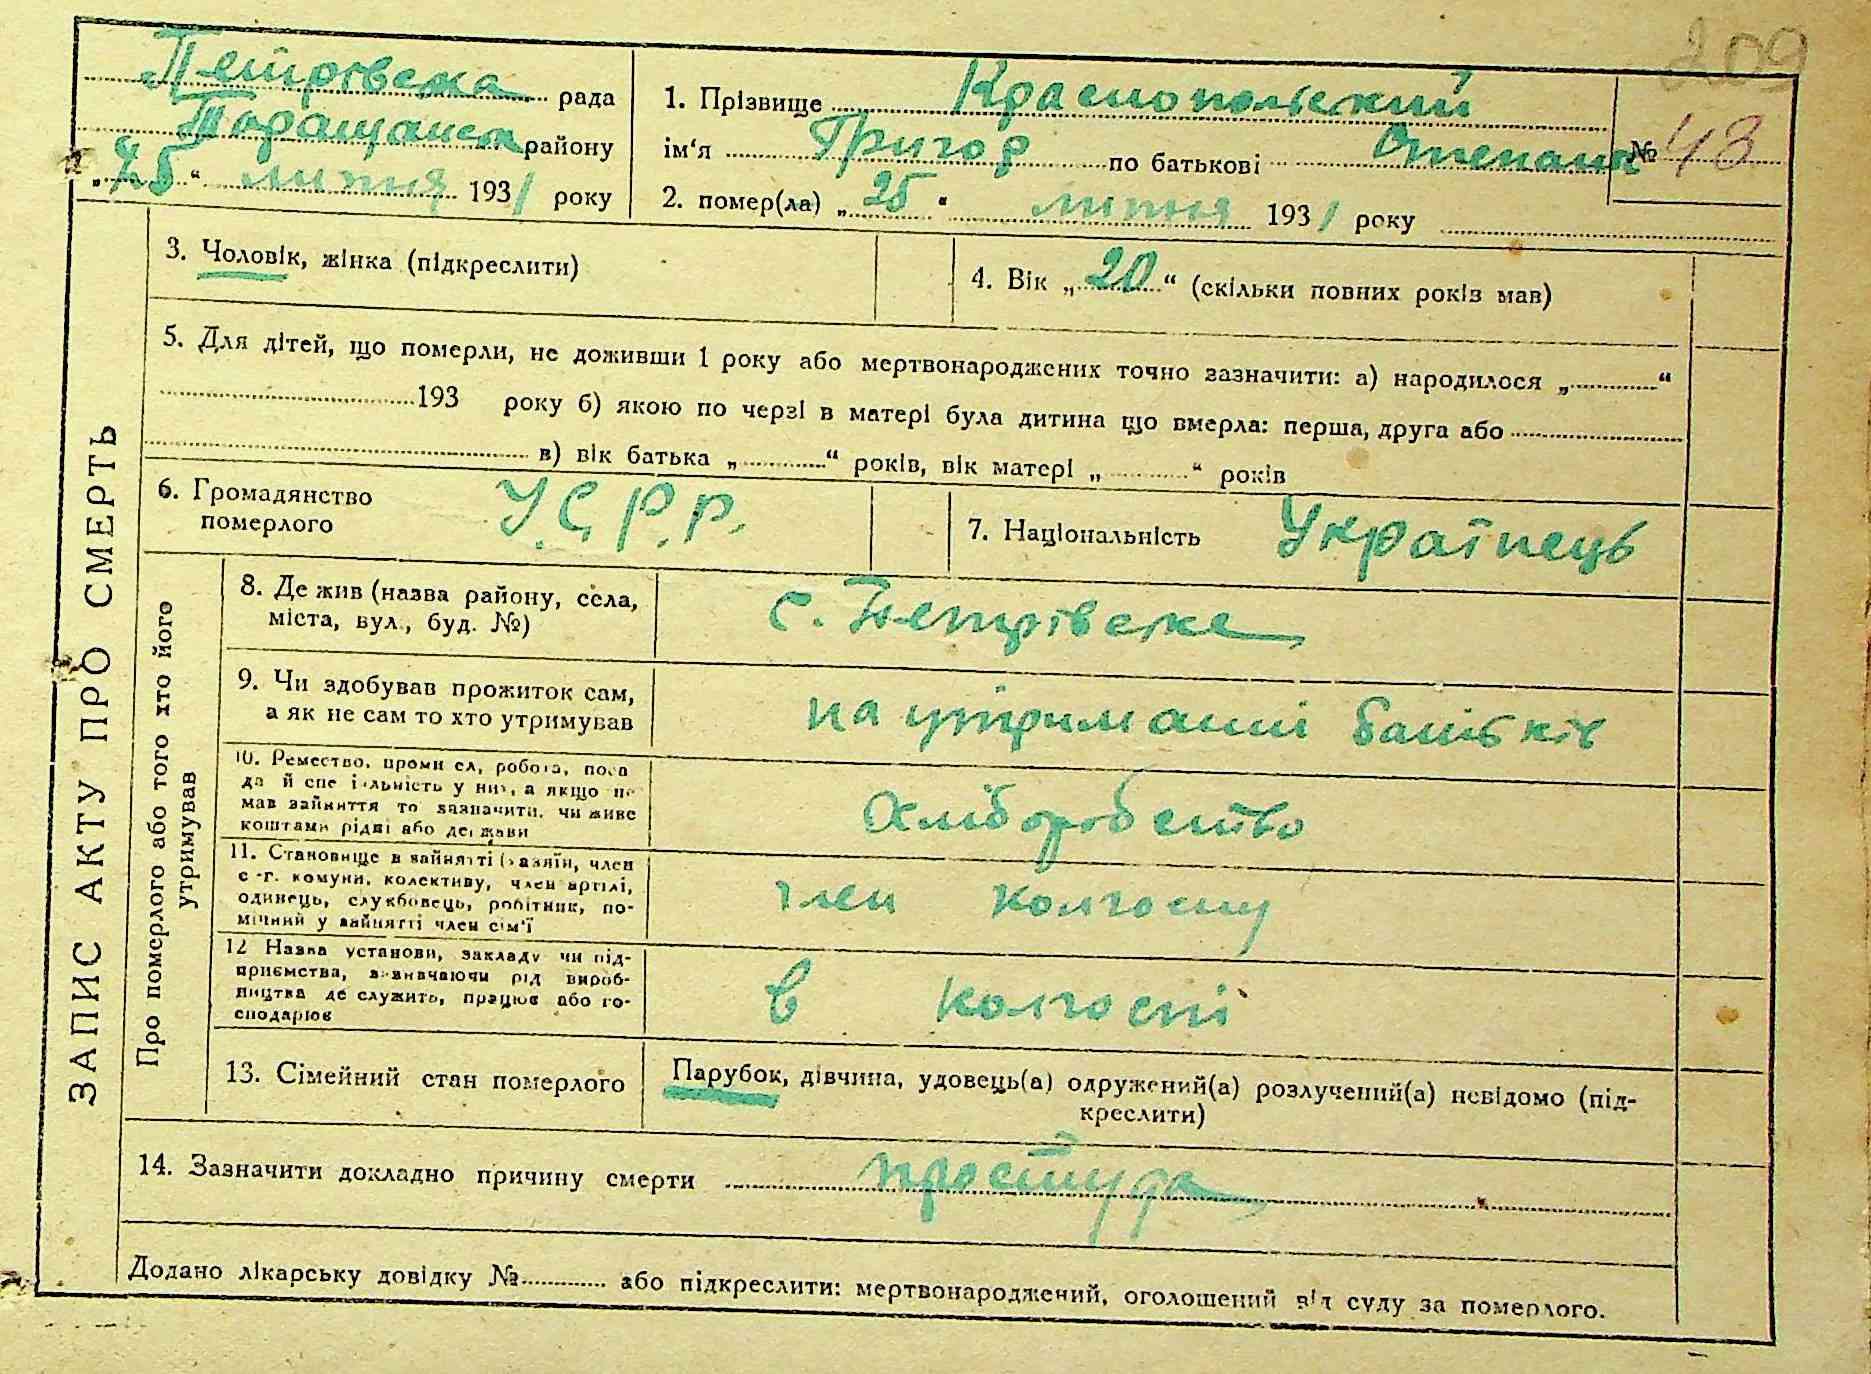 209
Петрівська рада
Таращанськ району
"25" липня 1931 року
1. Прізвище Краснопольський
ім'я Григор по батькові Степанов № 48
2. помер(ла) "25" липня 1931 року
3. Чоловік, жінка (підкреслити)
4. Вік "20" (скільки повних років мав)
5. Для дітей, що померли, не доживши 1 року або мертвонароджених точно зазначити: а) народилося „ “
193 року б) якою по черзі в матері була дитина що вмерла: перша, друга або
в) вік батька „ “ років, вік матері „ “ років
6. Громадянство
померлого
У.С.Р.Р.
7. Національність Українець
ЗАПИС АКТУ ПРО СМЕРТЬ
Про померлого або того хто його
утримував
8. Де жив (назва району, села,
міста, вул., буд. №)
с. Петрівське
9. Чи здобував прожиток сам,
а як не сам то хто утримував
на утриманні батьків
10. Ремество, промисел, робота, поса
да й спеціальність у них, а якщо не
мав зайняття то зазначити, чи живе
коштами рідні або держави
Хліборобство
11. Становище в зайнятті (хазяїн, член
с-г. комуни, колективу, член артілі,
одинець, службовець, робітник, по-
мічний у зайнятті член сім'ї
член колгоспу
12 Назва установи, закладу чи під-
приємства, визначаючи рід вироб-
ництва де служить, працює або го-
сподарює
в колгоспі
13. Сімейний стан померлого
Парубок, дівчина, удовець(а) одружений(а) розлучений(а) невідомо (під-
креслити)
14. Зазначити докладно причину смерти простуда
Додано лікарську довідку № або підкреслити: мертвонароджений, оголошений від суду за померлого.